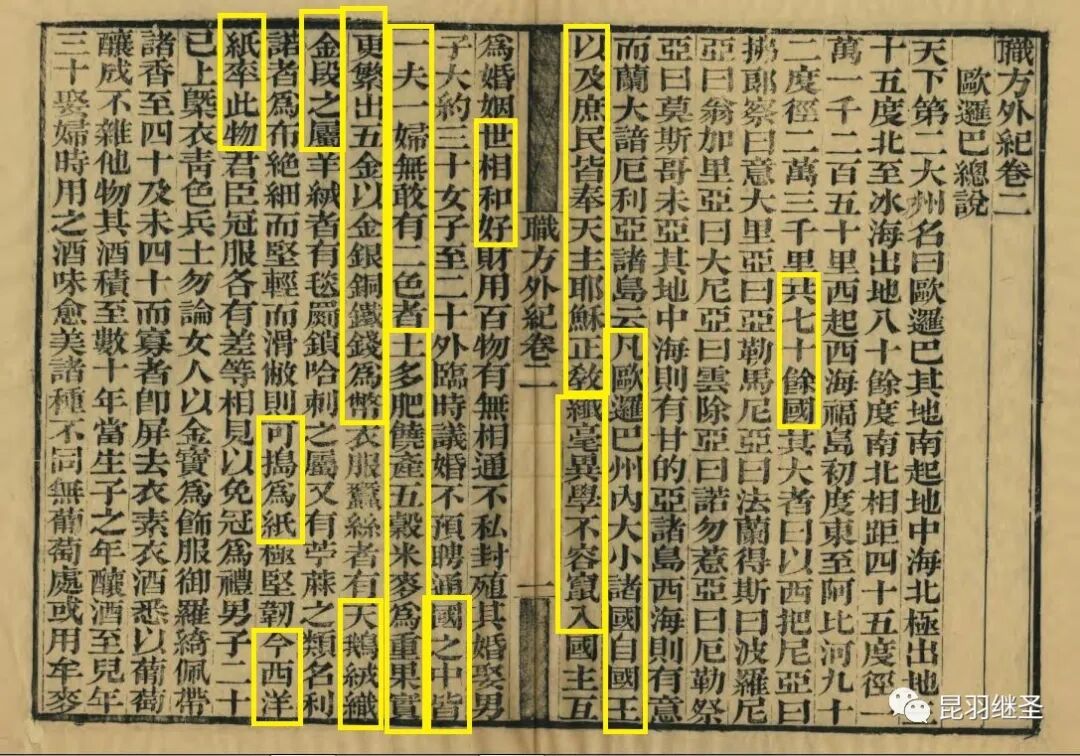 職方外紀卷二
歐邏巴總說
天下第二大州名曰歐邏巴其地南起地中海北極出地三
十五度北至冰海出地八十餘度南北相距四十五度徑一
萬一千二百五十里西起西海福島初度東至阿比河九十
二度徑二萬三千里共七十餘國其大者曰以西把尼亞曰
拂郎察曰意大里亞曰亞勒馬尼亞曰法蘭得斯曰波羅尼
亞曰翁加里亞曰大尼亞曰雲除亞曰諾勿惹亞曰厄勒祭
亞曰莫斯哥未亞其地中海則有甘的亞諸島西海則有意
而蘭大諳厄利亞諸島云凡歐邏巴州內大小諸國自國王
以及庶民皆奉天主耶穌正教纖毫異學不容竄入國主互
職方外紀卷二 一
為婚姻世相和好財用百物有無相通不私封殖其婚娶男
子大約三十女子至二十外臨時議婚不預聘通國之中皆
一夫一婦無敢有二色者土多肥饒產五穀米麥為重果實
更繁出五金以金銀銅鐵錢為幣衣服蠶絲者有天鵝絨織
金段之屬羊絨者有毯罽鎖哈剌之屬又有苧蔴之類名利
諾者為布絕細而堅輕而滑敝則可搗為紙極堅韌今西洋
紙率此物君臣冠服各有差等相見以免冠為禮男子二十
已上槩衣青色兵士勿論女人以金寶為飾服御羅綺佩帶
諸香至四十及未四十而寡者即屏去衣素衣酒悉以葡萄
釀成不雜他物其酒積至數十年當生子之年釀酒至兒年
三十娶婦時用之酒味愈美諸種不同無葡萄處或用牟麥
昆羽继圣